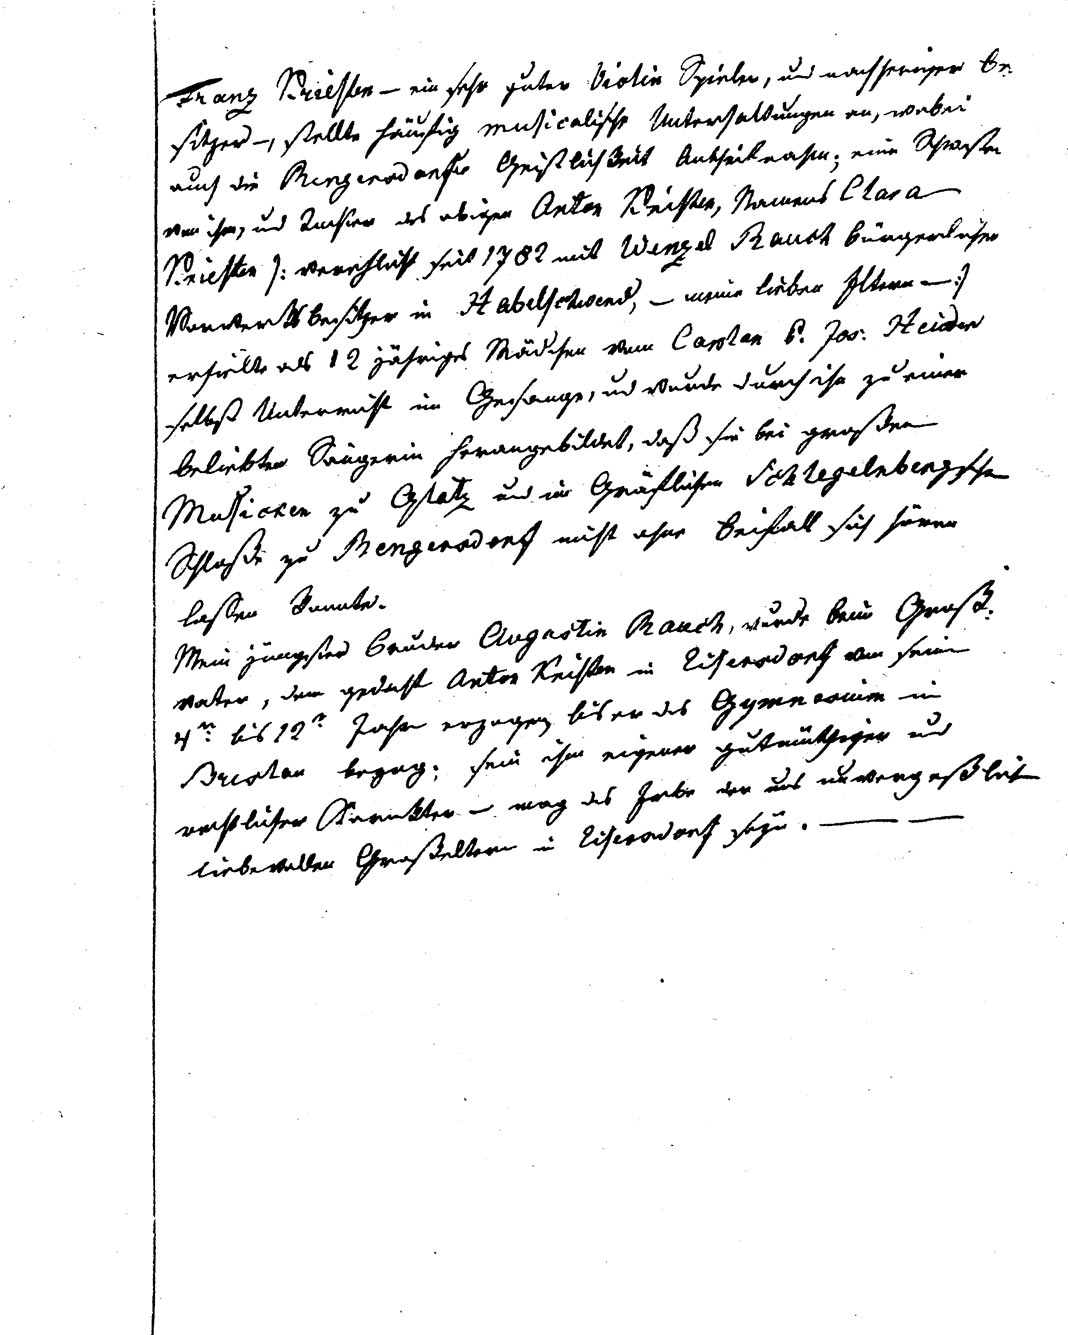 Franz Kriesten – ein sehr guter Violin Spieler, und nachheriger Be-
sitzer –, stellte häufig musicalische Unterhaltungen an, wobei
auch die Rengersdorfer Geistlichkeit Antheil nahm; eine Schwester
von ihm, und Tochter des obigen Anton Kriesten, Namens Clara
Kriesten |: verehlicht seit 1782 mit Wenzel Rauch bürgerlicher
Vorwerksbesitzer in Habelschwerd, – meine lieben Eltern – :|
erhielte als 12 jähriges Mädchen vom Caplan P. Jos: Heider
selbst Unterricht im Gesange, und wurde durch ihn zu einer
beliebten Sängerin herangebildet, daß sie bei großen
Musicken zu Glatz und im Gräflichen Schlegelnbergschen
Schloße zu Rengersdorf nicht ohne Beifall sich hören
laßen konnte.
Mein jüngster Bruder Augustin Rauch, wurde beim Groß-
vater, dem gedacht Anton Kristen in Eisersdorf von seim
4n bis 12n Jahr erzogen bis er das Gymnasium in
Breslau bezog; sein ihm eigener gutmüthiger und
rechtlicher Karackter – mag das Erbe der uns unvergeßlich
liebevollen Großeltern in Eisersdorf seyn. — —